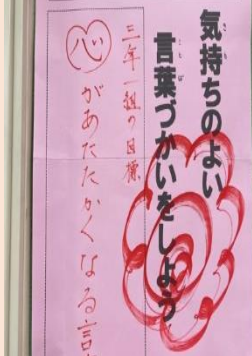 気持ちのよい
言葉づかいをしよう
三年一組の目標
心があたたかくなる言